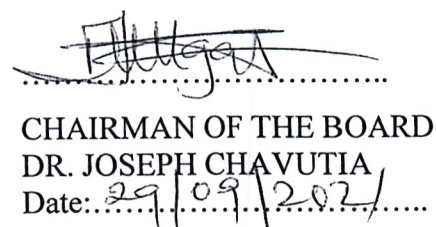 CHAIRMAN OF THE BOARD
DR. JOSEPH CHAVUTIA
Date: 29/09/2021